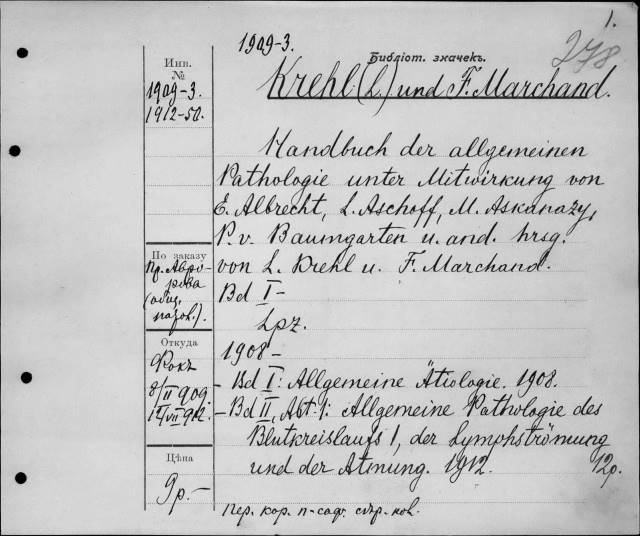 1.
278
1909-3.
Библіот. значекъ.
Krehl (L.) und F. Marchand.
Инв.
№
1909-3.
1912-50.
Handbuch der allgemeinen
Pathologie unter Mitwirkung von
E. Albrecht, L. Aschoff, M. Askanazy,
P. v. Baumgarten u. and. hrsg.
von L. Krehl u. F. Marchand.
Bd I-
Lpz.
1908-
По заказу
Пр. Авро-
рова
(общ.
патол.).
Откуда
Фокъ
8/II 909.
12/VII 912.
- Bd I: Allgemeine Ätiologie. 1908.
- Bd II, Abt. 1: Allgemeine Pathologie des
Blutkreislaufs 1, der Lymphströmung
und der Atmung. 1912. 12р.
Цѣна
9р.-
Пер. кор. п-саф.